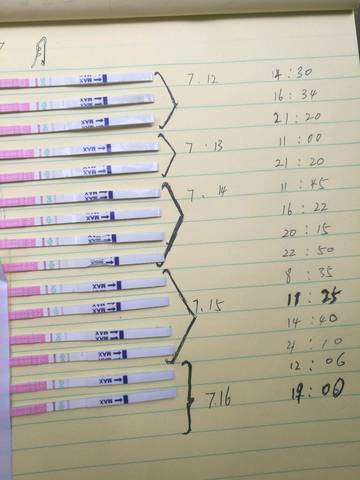 7.12 14:30
16:34
21:20
7.13 11:00
21:20
7.14 11:45
16:22
20:15
22:50
8:35
7.15 11:25
14:40
21:10
12:06
7.16 19:00
MAX
MAX
MAX
MAX
MAX
MAX
MAX
MAX
MAX
MAX
MAX
MAX
MAX
MAX
MAX